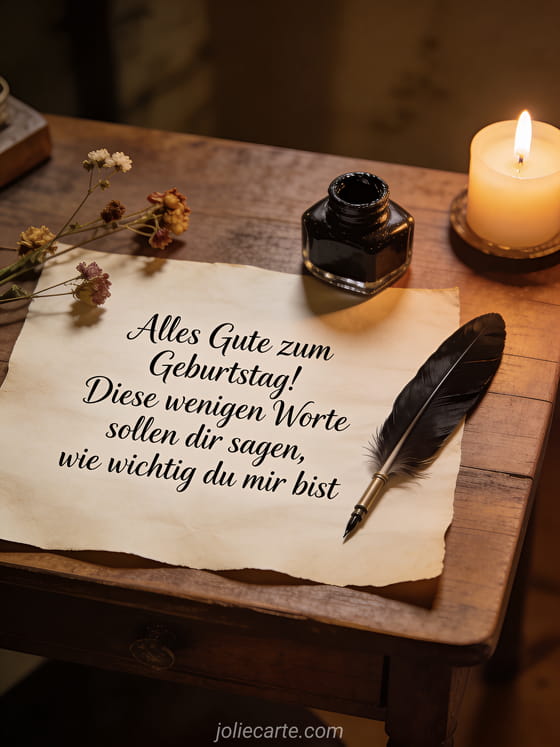 Alles Gute zum
Geburtstag!
Diese wenigen Worte
sollen dir sagen,
wie wichtig du mir bist
joliecarte.com